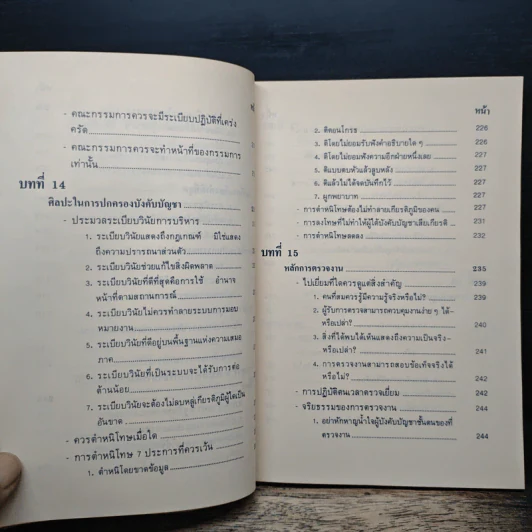 - คณะกรรมการควรจะมีระเบียบปฏิบัติที่เคร่ง
ครัด
- คณะกรรมการควรจะทำหน้าที่ของกรรมการ
เท่านั้น
บทที่ 14
ศิลปะในการปกครองบังคับบัญชา
- ประมวลระเบียบวินัยการบริหาร
1. ระเบียบวินัยแสดงถึงกฎเกณฑ์ มิใช่แสดง
ถึงความปรารถนาส่วนตัว
2. ระเบียบวินัยช่วยแก้ไขสิ่งผิดพลาด
3. ระเบียบวินัยที่ดีที่สุดคือการใช้ อำนาจ
หน้าที่ตามสถานการณ์
4. ระเบียบวินัยไม่ควรทำลายระบบการมอบ
หมายงาน
5. ระเบียบวินัยที่ดีอยู่บนพื้นฐานแห่งความเสมอ
ภาค
6. ระเบียบวินัยที่เป็นระบบจะได้รับการต่อ
ต้านน้อย
7. ระเบียบวินัยจะต้องไม่ลบหลู่เกียรติภูมิผู้ใดเป็น
อันขาด
- ควรตำหนิโทษเมื่อใด
- การตำหนิโทษ 7 ประการที่ควรเว้น
1. ตำหนิโดยขาดข้อมูล
หน้า
2. ติตอนโกรธ 226
3. ติโดยไม่ยอมรับฟังคำอธิบายใด ๆ 226
4. ติโดยไม่ฟังความอีกฝ่ายหนึ่งเลย 227
5. ติแบบตบหัวแล้วลูบหลัง 227
6. ติแล้วไม่ได้จดบันทึกไว้ 227
7. ผูกพยาบาท 227
- การตำหนิโทษต้องไม่ทำลายเกียรติภูมิของคน 228
- การลงโทษที่ไม่ทำให้ผู้ใต้บังคับบัญชาเสียเกียรติ 231
- การตำหนิโทษลดลง 232
บทที่ 15
หลักการตรวจงาน 235
- ไปเยี่ยมที่ใดควรดูแต่สิ่งสำคัญ 239
1. คนที่สมควรรู้มีความรู้จริงหรือไม่? 239
2. ผู้รับการตรวจสามารถควบคุมงานง่าย ๆ ได้-
หรือเปล่า? 240
3. สิ่งที่ได้พบได้เห็นแสดงถึงความเป็นจริง-
หรือเปล่า? 241
4. การตรวจงานสามารถสอบข้อเท็จจริงได้
หรือไม่? 242
- การปฏิบัติตนเวลาตรวจเยี่ยม 242
- จริยธรรมของการตรวจงาน 244
1. อย่าหักหาญน้ำใจผู้บังคับบัญชาชั้นตนของที่
ตรวจงาน 244